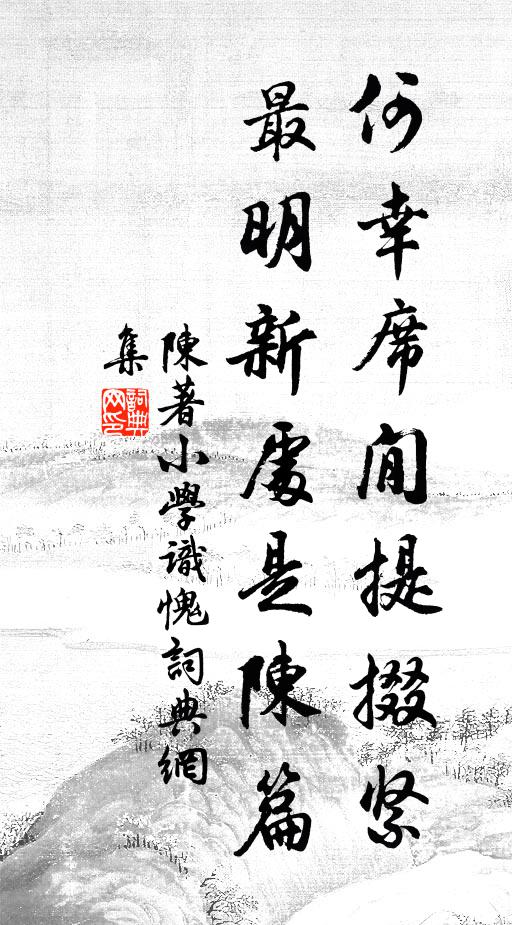 何幸席間提掇緊
最明新處是陳篇
陳著小學識愧詞典網
集
詞典
网印